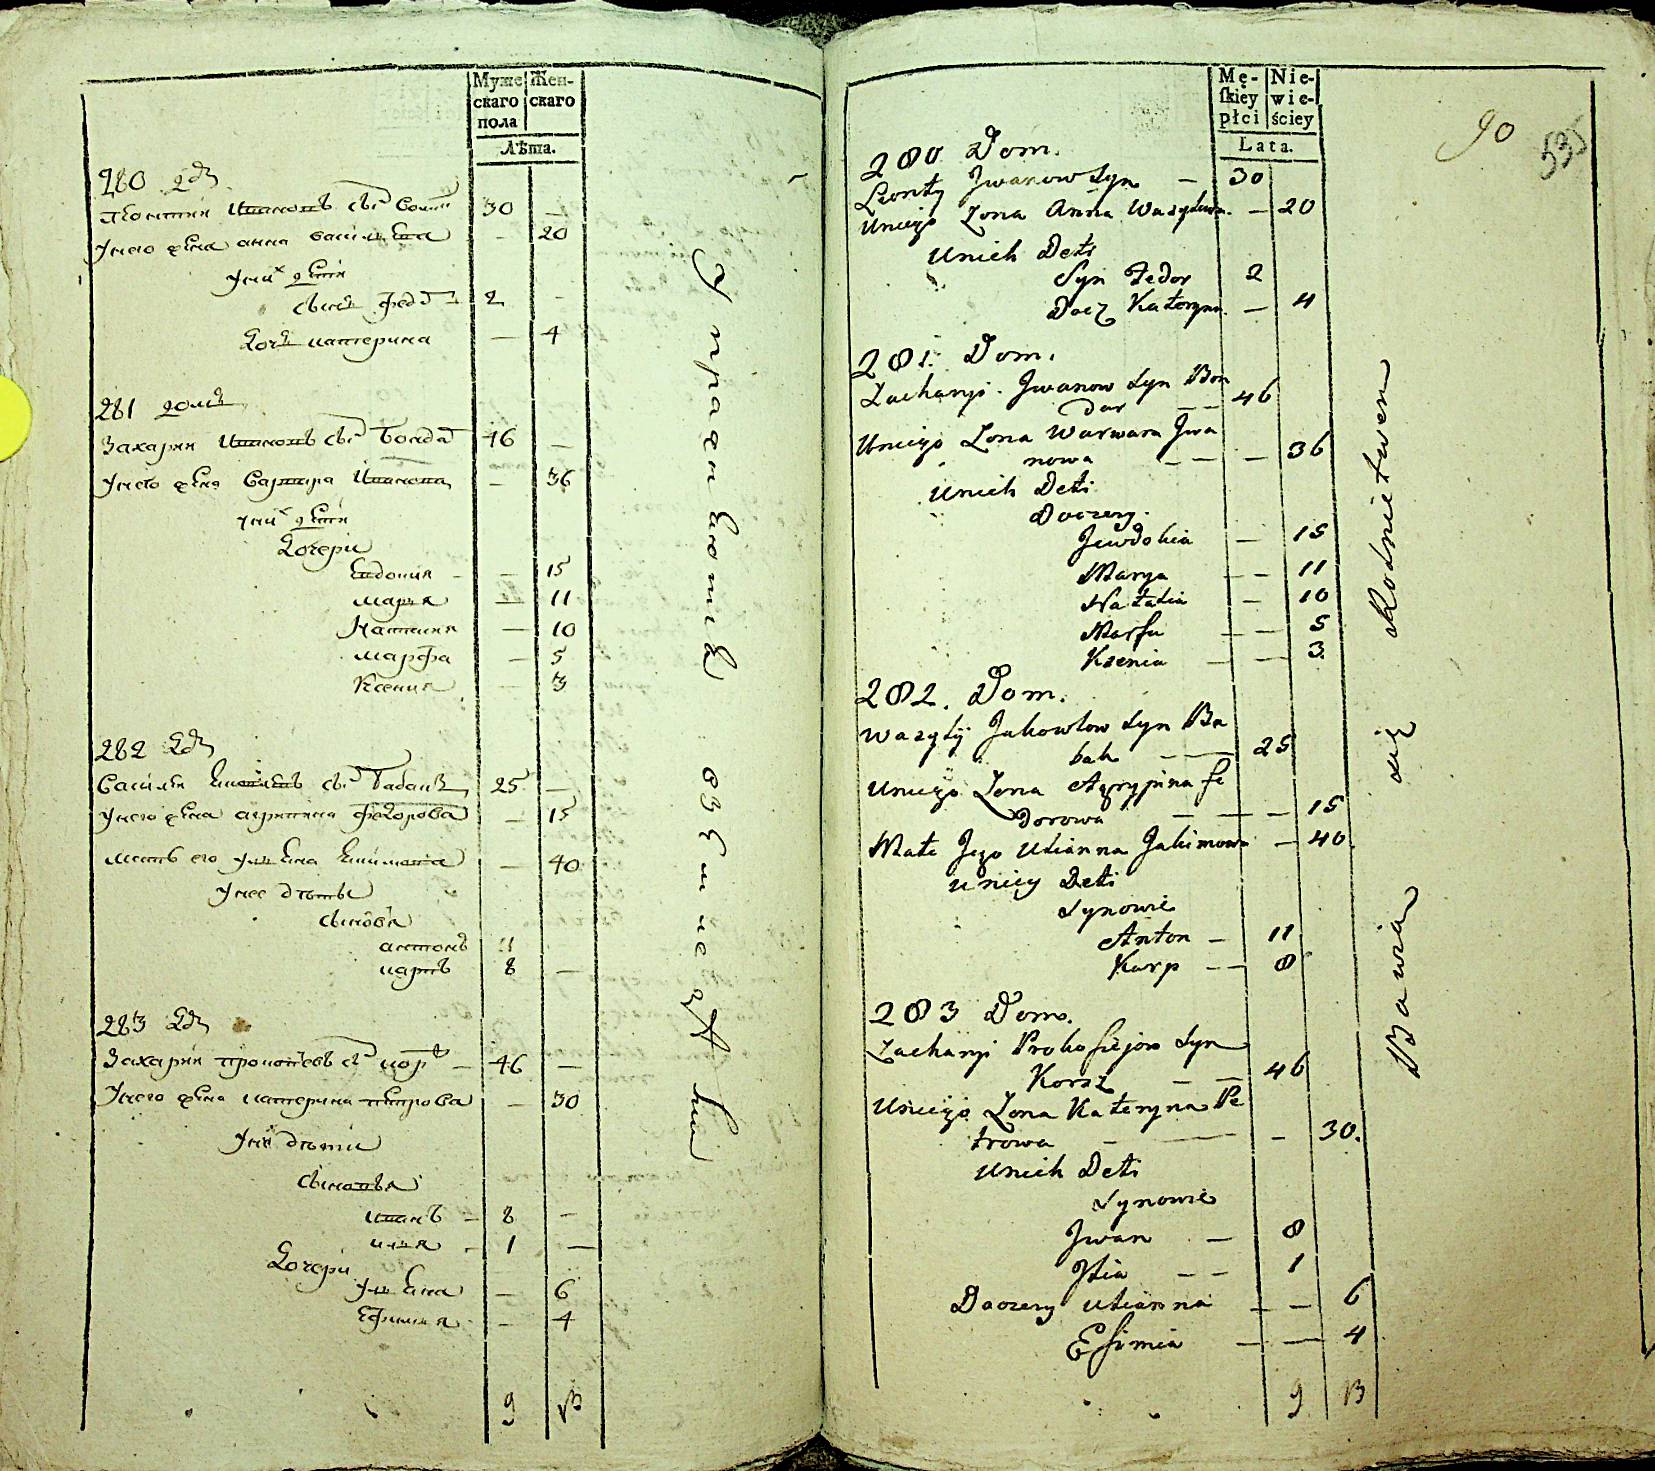 Муже
скаго
пола
Жен-
скаго
Лѣта.
280
Леонтий Ивановъ сынъ 30 —
У него жена анна васильева — 20
у них дети
сынъ федоръ 2 -
дочь катерина — 4
281 домъ
Захарий Ивановъ сынъ бондар 46 —
У него жена Варвара Иванова — 36
у них дети
дочери
Евдокия - — 15
марья — 11
Наталия — 10
марфа — 5
Ксения — 3
282
Василий сынъ бабакъ 25 —
У него жена агрипина федорова — 15
мать его улиена — 40
У нее дѣти
сыновья
антонъ 11
карпъ 8 —
283
Захарий прокофевъ сынъ корж — 46 —
У него жена катерина петрова — 30
У них дѣти
сыновья
иванъ — 8 —
илья - 1 —
дочери
Улиена — 6
Ефимия - 4
9 13
упражняютца
в
Mę-
ſkiey
płci
Nie-
wie-
ściey
Lata.
90
535
280 Dom.
Leonty Jwanow Syn — 30
Uniego Zona Anna Wasylewa. — 20
Unich Deti
Syn Fedor 2
Docz Kateryna. — 4
281. Dom.
Zacharyi. Jwanow Syn Bon
dar — — 46
Uniego Zona Warwara Jwa
nowa — — — 36
Unich Deti
Doczery.
Jewdokia — 15
Marya — — 11
Natalia — 10
Marfa — — 5
Ksenia — — 3.
282. Dom.
Wasylij Jakowlow Syn Ba
bak — — 25
Uniego Zona Agrypina fe
dorowa — — — 15
Mati Jego Ulianna Jakimowa — 40.
Uniey Deti
Synowie
Anton — 11
Karp — — 8
283 Dom.
Zacharyi Prokofiejow Syn
Korsz — — 46
Uniego Zona Kateryna Pe
trowa - — - 30.
Unich Deti
Synowie
Jwan — 8
Jlia — — 1
Doczery Ulianna — — 6
Efimia — — 4
9 13
Bawią się Rolnictwem